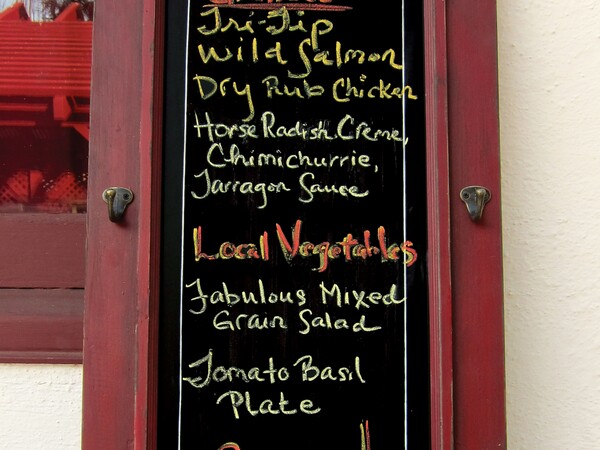 Tri-Tip
Wild Salmon
Dry Rub Chicken
Horse Radish Creme,
Chimichurrie,
Tarragon Sauce
Local Vegetables
Fabulous Mixed
Grain Salad
Tomato Basil
Plate